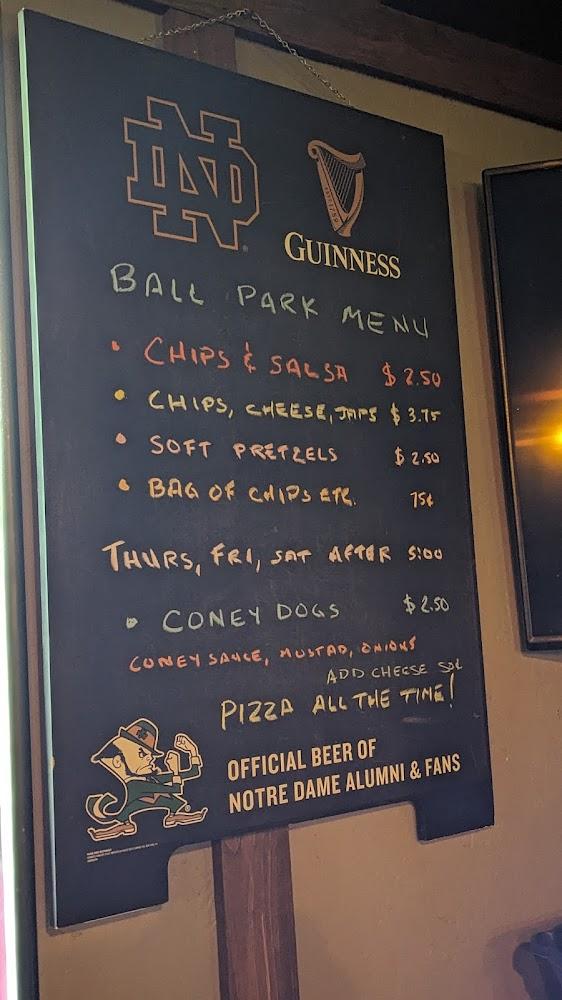 ND
GUINNESS
BALL PARK MENU
• CHIPS & SALSA $2.50
• CHIPS, CHEESE, JAPS $3.75
• SOFT PRETZELS $2.50
• BAG OF CHIPS ETC. 75¢
THURS, FRI, SAT AFTER 5:00
• CONEY DOGS $2.50
CONEY SAUCE, MUSTAD, ONIONS
ADD CHEESE 50¢
PIZZA ALL THE TIME!
OFFICIAL BEER OF
NOTRE DAME ALUMNI & FANS